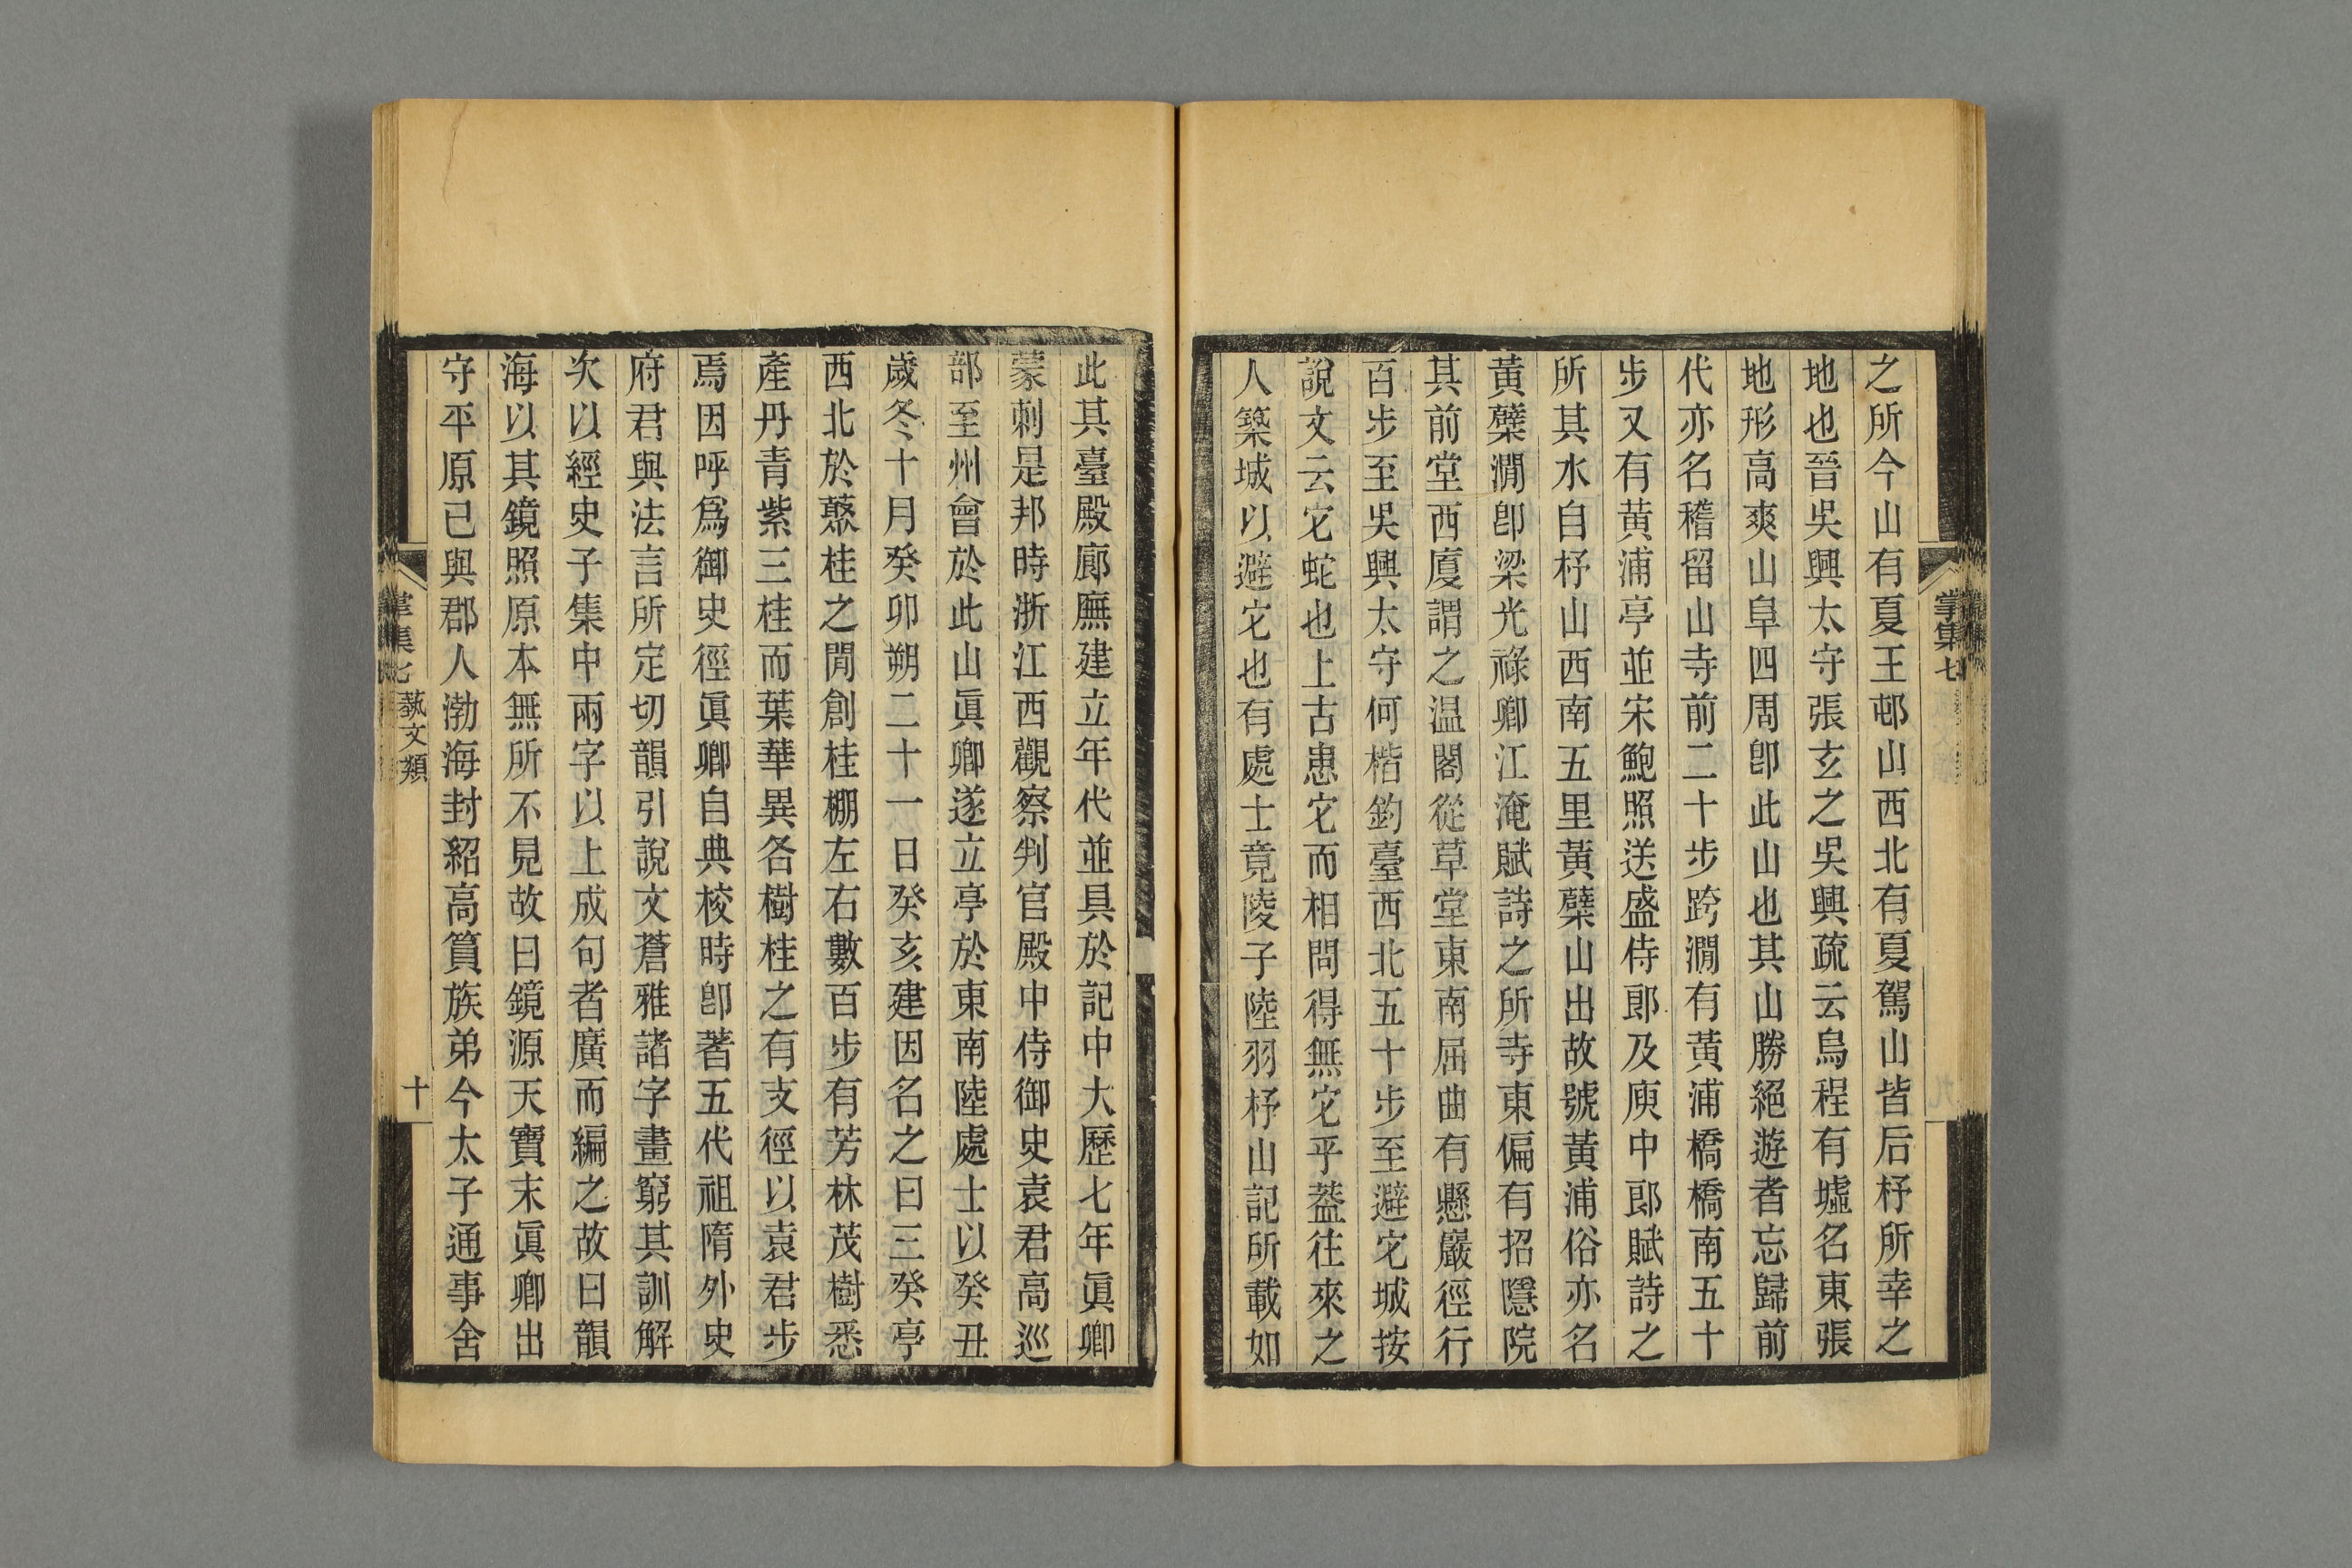 之所今山有夏王邨山西北有夏駕山皆后杼所幸之
地也晉吳興太守張玄之吳興疏云烏程有墟名東張
地形高爽山阜四周卽此山也其山勝絕遊者忘歸前
代亦名稽留山寺前二十步跨澗有黃浦橋橋南五十
步又有黃浦亭並宋鮑照送盛侍郎及庾中郎賦詩之
所其水自杼山西南五里黃蘗山出故號黃浦俗亦名
黃蘗澗卽梁光祿卿江淹賦詩之所寺東偏有招隱院
其前堂西廈謂之温閣從草堂東南屈曲有懸巖徑行
百步至吳興太守何楷釣臺西北五十步至避它城按
說文云它蛇也上古患它而相問得無它乎葢往來之
人築城以避它也有處士竟陵子陸羽杼山記所載如
掌集七
此其臺殿廊廡建立年代並具於記中大歷七年眞卿
蒙刺是邦時浙江西觀察判官殿中侍御史袁君高巡
部至州會於此山眞卿遂立亭於東南陸處士以癸丑
歲冬十月癸卯朔二十一日癸亥建因名之曰三癸亭
西北於藂桂之閒創桂棚左右數百步有芳林茂樹悉
產丹青紫三桂而葉華異各樹桂之有支徑以袁君步
焉因呼爲御史徑眞卿自典校時卽著五代祖隋外史
府君與法言所定切韻引說文蒼雅諸字畫窮其訓解
次以經史子集中兩字以上成句者廣而編之故曰韻
海以其鏡照原本無所不見故曰鏡源天寶末眞卿出
守平原已與郡人渤海封紹高篔族弟今太子通事舍
掌集七 藝文類 十